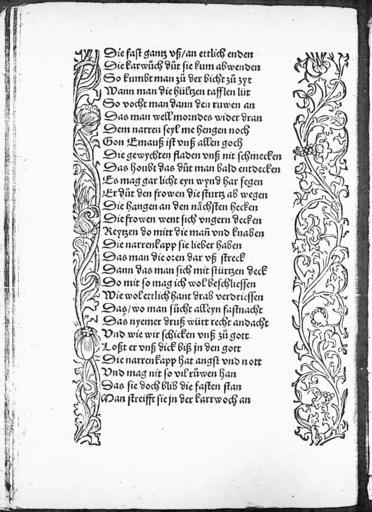 Die fast gantz vß/an ettlich enden
Die karwůch důt sie kum abwenden
So kumbt man zů der bicht zů zyt
Wann man die hültzen tafflen lüt
So vocht man dann den ruwen an
Das man well morndes wider dran
Dem narren seyl me hengen noch
Gon Emauß ist vnß allen goch
Die gewychten fladen vnß nit schmecken
Das houbt das dűt man bald entdecken
Es mag gar licht eyn wynd har fegen
Er důt den frowen die sturtz ab wegen
Die hangen an den nåchsten hecken
Die frowen went sich vngern decken
Reytzen do mitt die mañ vnd knaben
Die narrenkapp sie lieber haben
Das man die oren dar vß streck
Dann das man sich mit stürtzen deck
Do mit so mag ich wol beschliessen
Wie wol ettlich hant drab verdriessen
Das/wo man sůcht alleyn fastnacht
Das nyemer druß würt recht andacht
Vnd wie wir schicken vnß zů gott
Loßt er vnß dick biß jn den gott
Die narrenkapp hat angst vnd nott
Vnd mag nit so vil růwen han
Das sie doch blib die fasten stan
Man streifft sie jn der kartwoch an